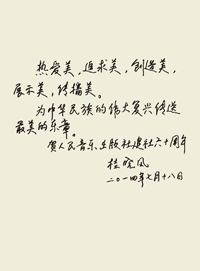 热爱美，追求美，创造美，
展示美，传播美。
为中华民族的伟大复兴缔造
最美的乐章。
贺人民音乐出版社建社六十周年
桂晓风
二〇一四年七月十八日